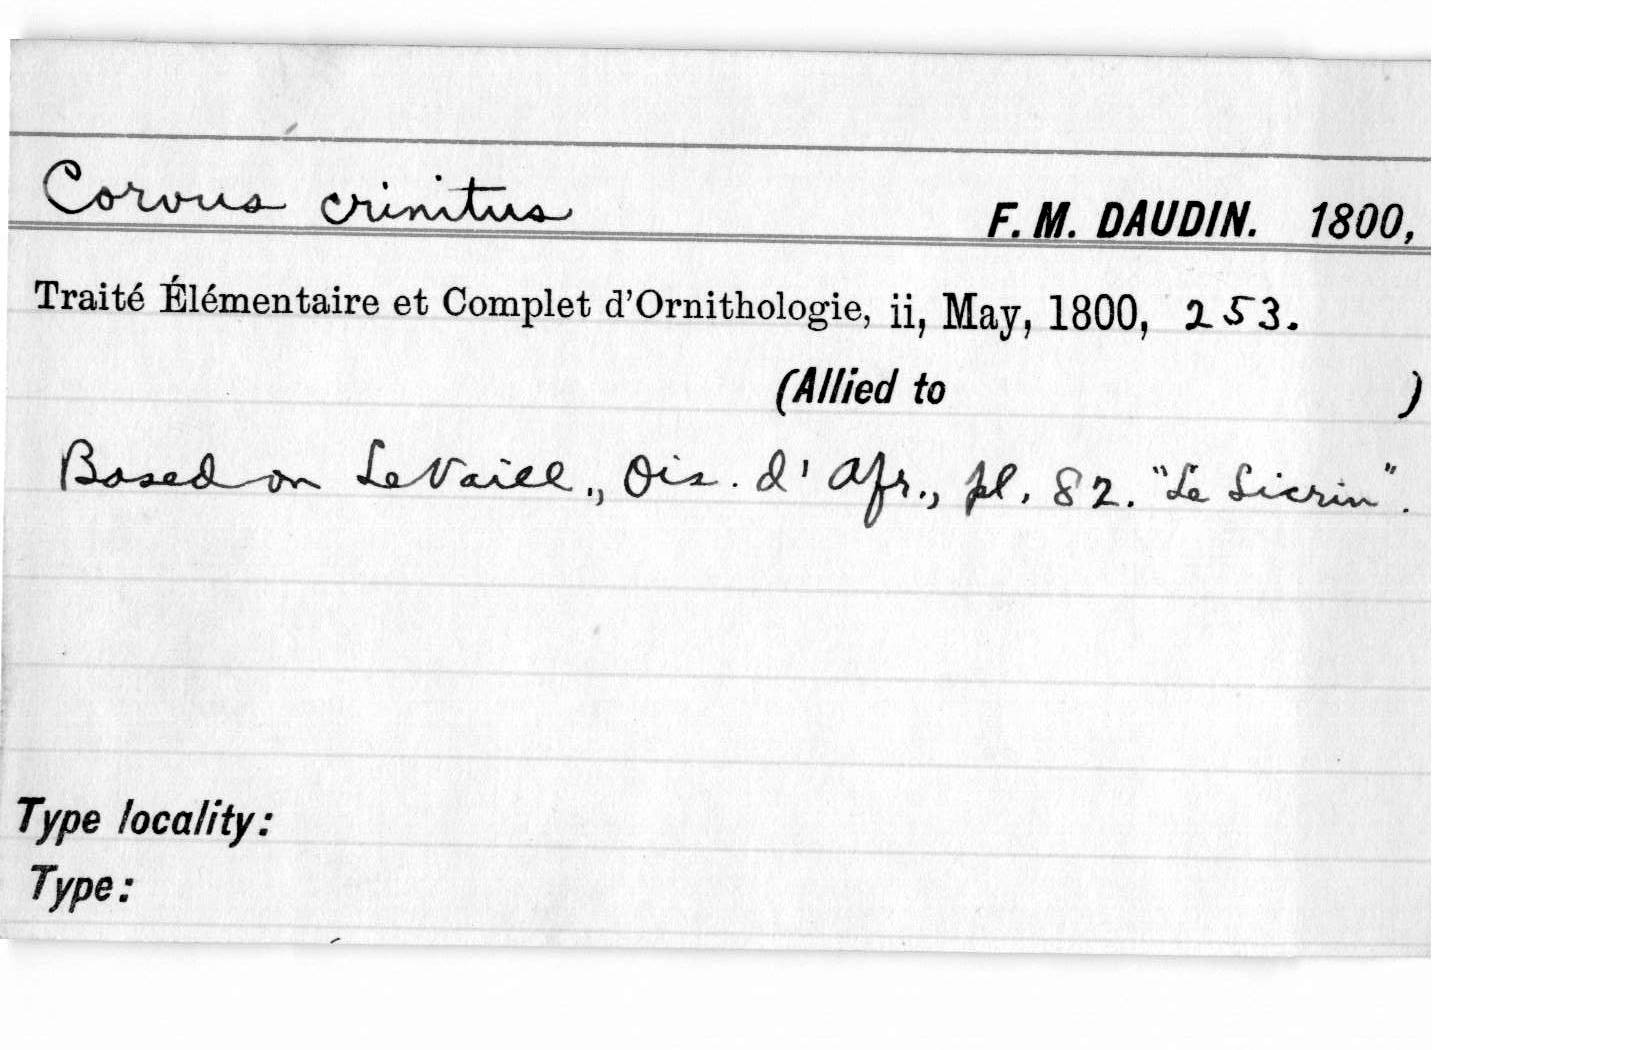 Corvus crinitus F. M. DAUDIN. 1800,
Traité Élémentaire et Complet d'Ornithologie, ii, May, 1800, 253.
(Allied to )
Based on LeVaill., Ois. d'Afr., pl. 82. "Le Sicrin".
Type locality:
Type: